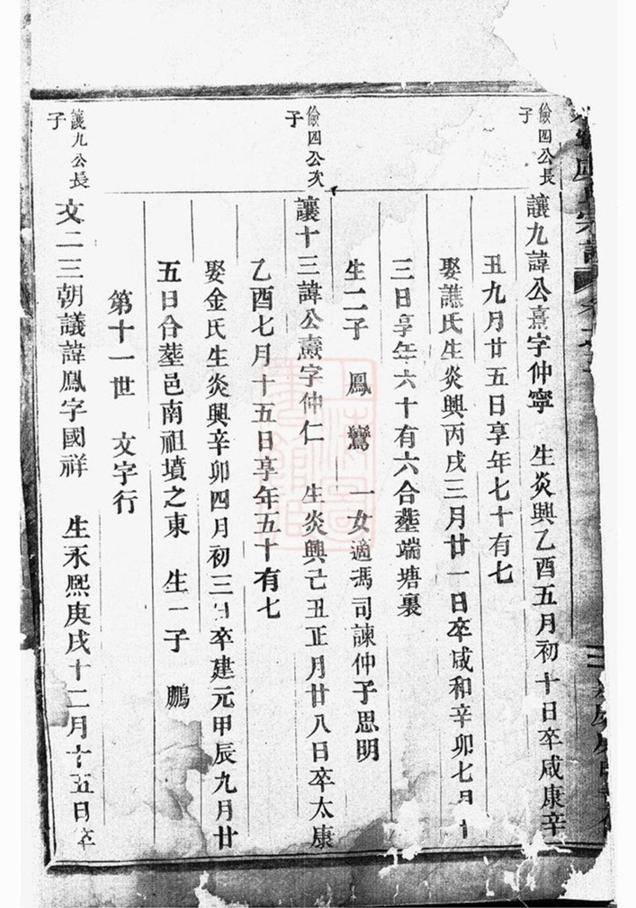 儉四公長
子
讓九諱公熹字仲寧　生炎興乙酉五月初十日卒咸康辛
丑九月廿五日享年七十有七
娶譙氏生炎興丙戌三月廿一日卒咸和辛卯七月十
三日享年六十有六合塟端塘裏
生二子　鳳　鸞　一女適馮司諫仲子思明
儉四公次
子
讓十三諱公燾字仲仁　生炎興己丑正月廿八日卒太康
乙酉七月十五日享年五十有七
娶金氏生炎興辛卯四月初三日卒建元甲辰九月廿
五日合塟邑南祖墳之東　生一子　鵬
第十一世　文字行
讓九公長
子
文二三朝議諱鳳字國祥　生永熙庚戌十二月十五日卒